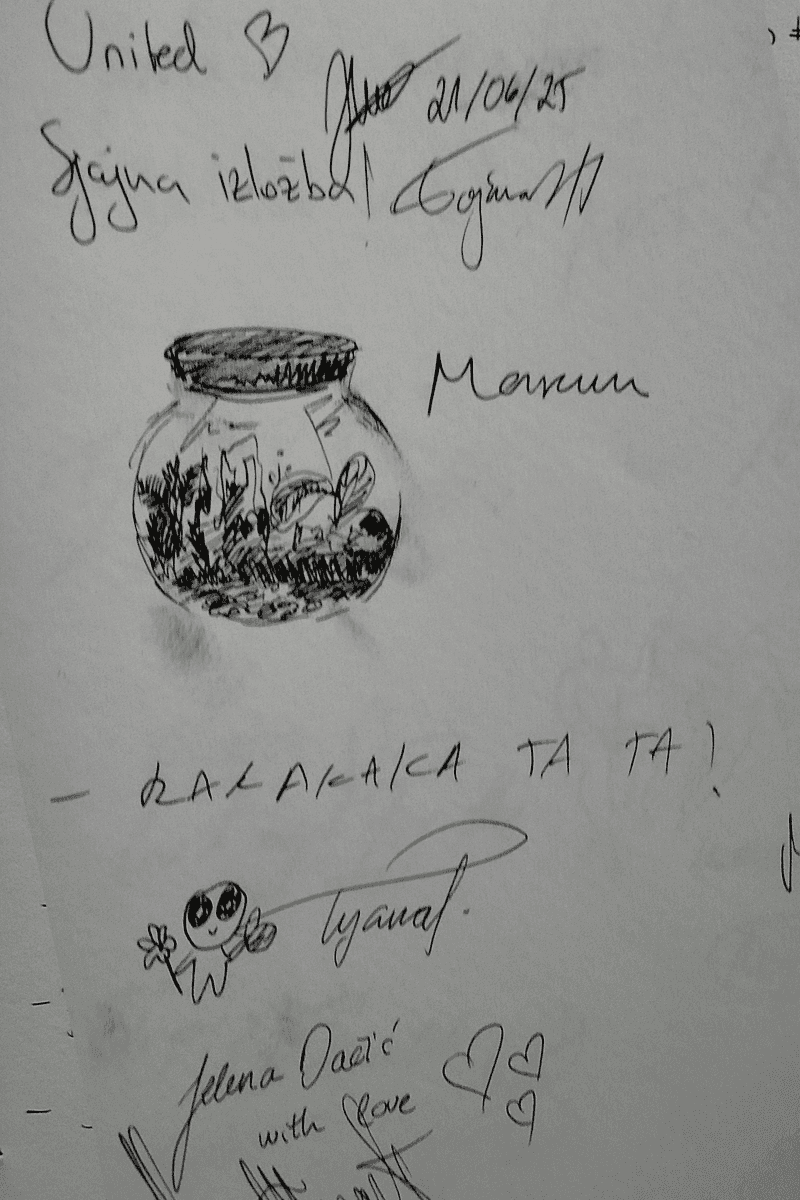 United
21/06/25
Sjajna izložba!
Максим
- KAKAKAKA TA TA!
Jelena Dačić
with love